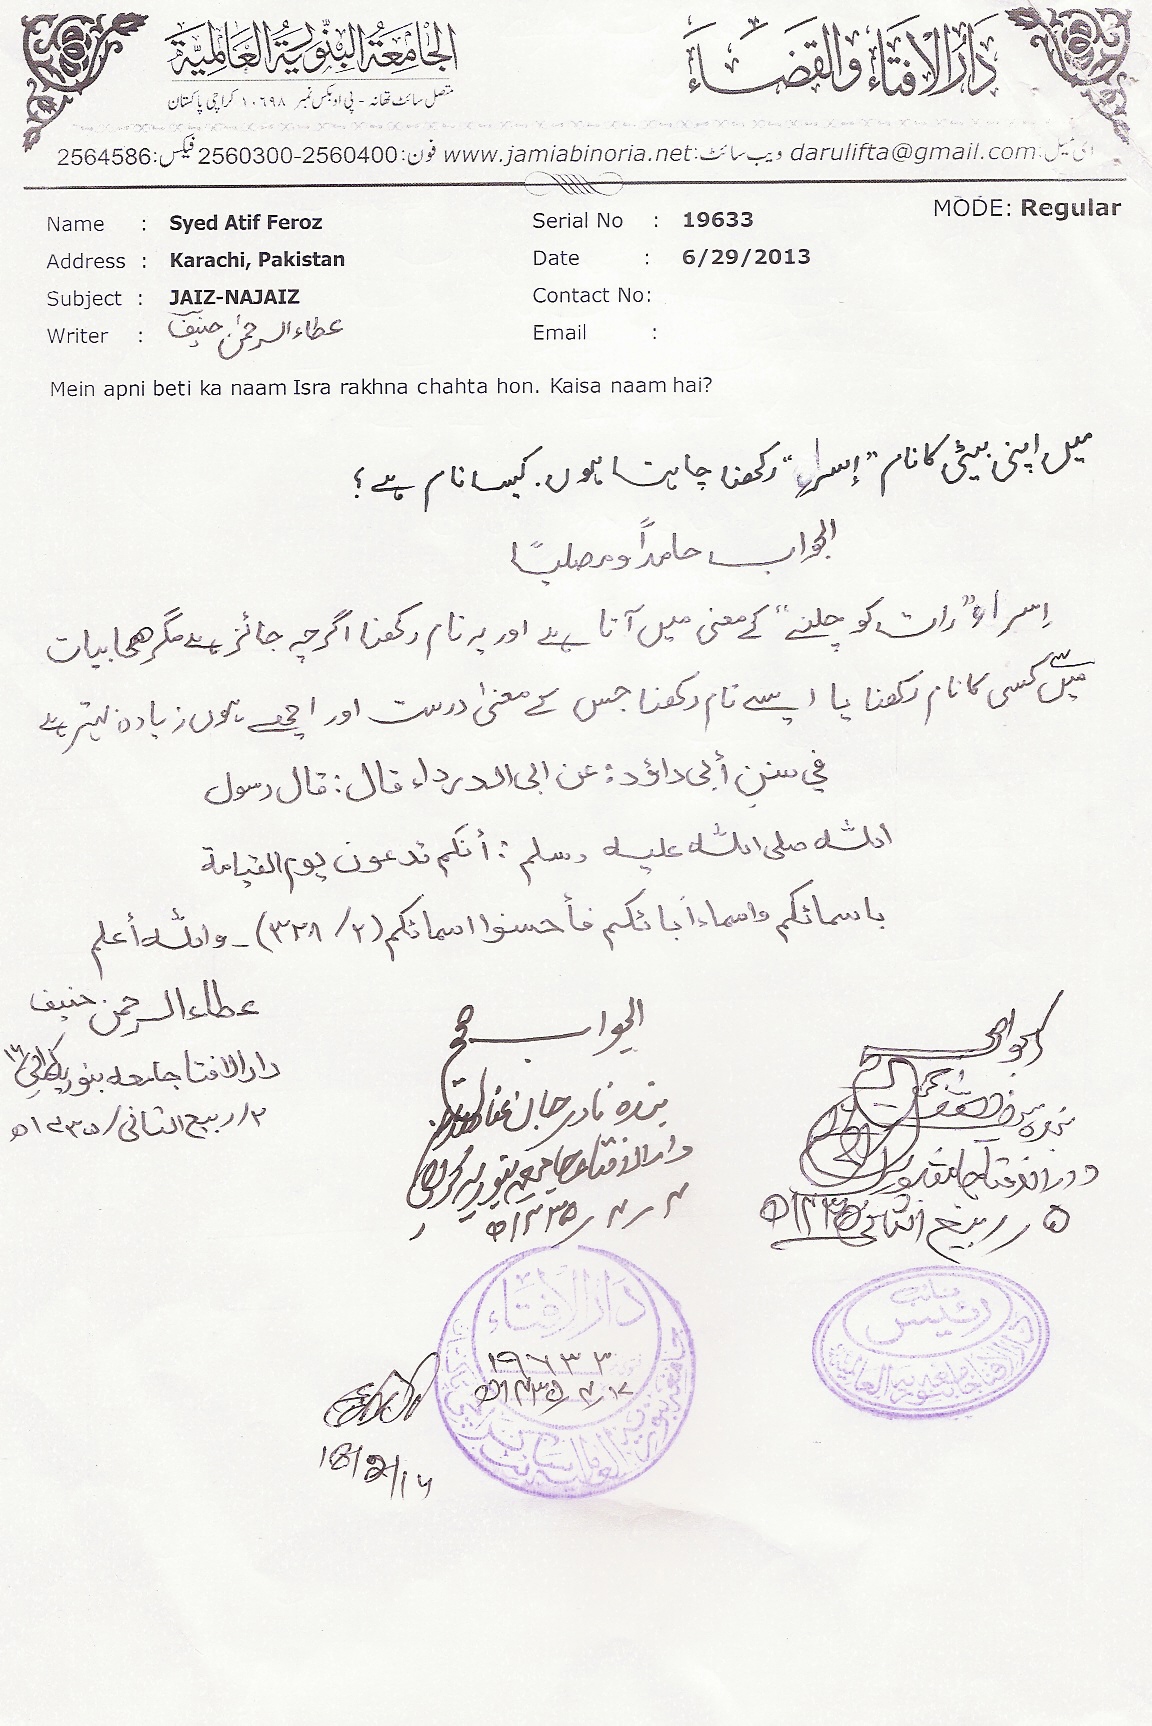 دَارُالافتَاء وَالقَضَاءَ
الجَامعَةُ البِنّوريَّة العَالميَّة
متصل سائٹ تھانہ - پی او بکس نمبر ۱۰۶۹۸ کراچی پاکستان
ای میل: darulifta@gmail.com ویب سائٹ: www.jamiabinoria.net فون: 2560300-2560400 فیکس: 2564586
MODE: Regular
Name : Syed Atif Feroz Serial No : 19633
Address : Karachi, Pakistan Date : 6/29/2013
Subject : JAIZ-NAJAIZ Contact No:
Writer : عطاء الرحمٰن حنیف Email :
Mein apni beti ka naam Isra rakhna chahta hon. Kaisa naam hai?
میں اپنی بیٹی کا نام "إسراء" رکھنا چاہتا ہوں. کیسا نام ہے؟
الجواب حامداً ومصلیًا
اِسراء "رات کو چلنے" کے معنی میں آتا ہے اور یہ نام رکھنا اگرچہ جائز ہے مگر صحابیات
میں سے کسی کا نام رکھنا یا ایسے نام رکھنا جس کے معنیٰ درست اور اچھے ہوں زیادہ بہتر ہے
في سنن أبی داؤد: عن ابی الدرداء قال: قال رسول
اللہ صلی اللہ علیہ وسلم: أنکم تدعون یوم القیامة
باسمائکم واسماء آبائکم فأحسنوا اسمائکم (۲/ ۳۲۸) ـ واللہ أعلم
عطاء الرحمن حنیف
دارالافتا جامعہ بنوریہ کراچی ۱۶
۲/ ربیع الثانی/ ۱۴۳۵ھ
الجواب صحیح
بندہ نادر جان
دارالافتاء جامعہ بنوریہ کراچی
۴ ر ۴ ر ۱۴۳۵ھ
الجواب
بندہ
دارالافتاء جامعہ بنوریہ
۵ ر ربیع الثانی ۱۴۳۵ھ
دَارُالافتَاء
۱۹۶۳۳
نائب
رئیس
دارالافتاء جامعہ بنوریہ العالمیۃ